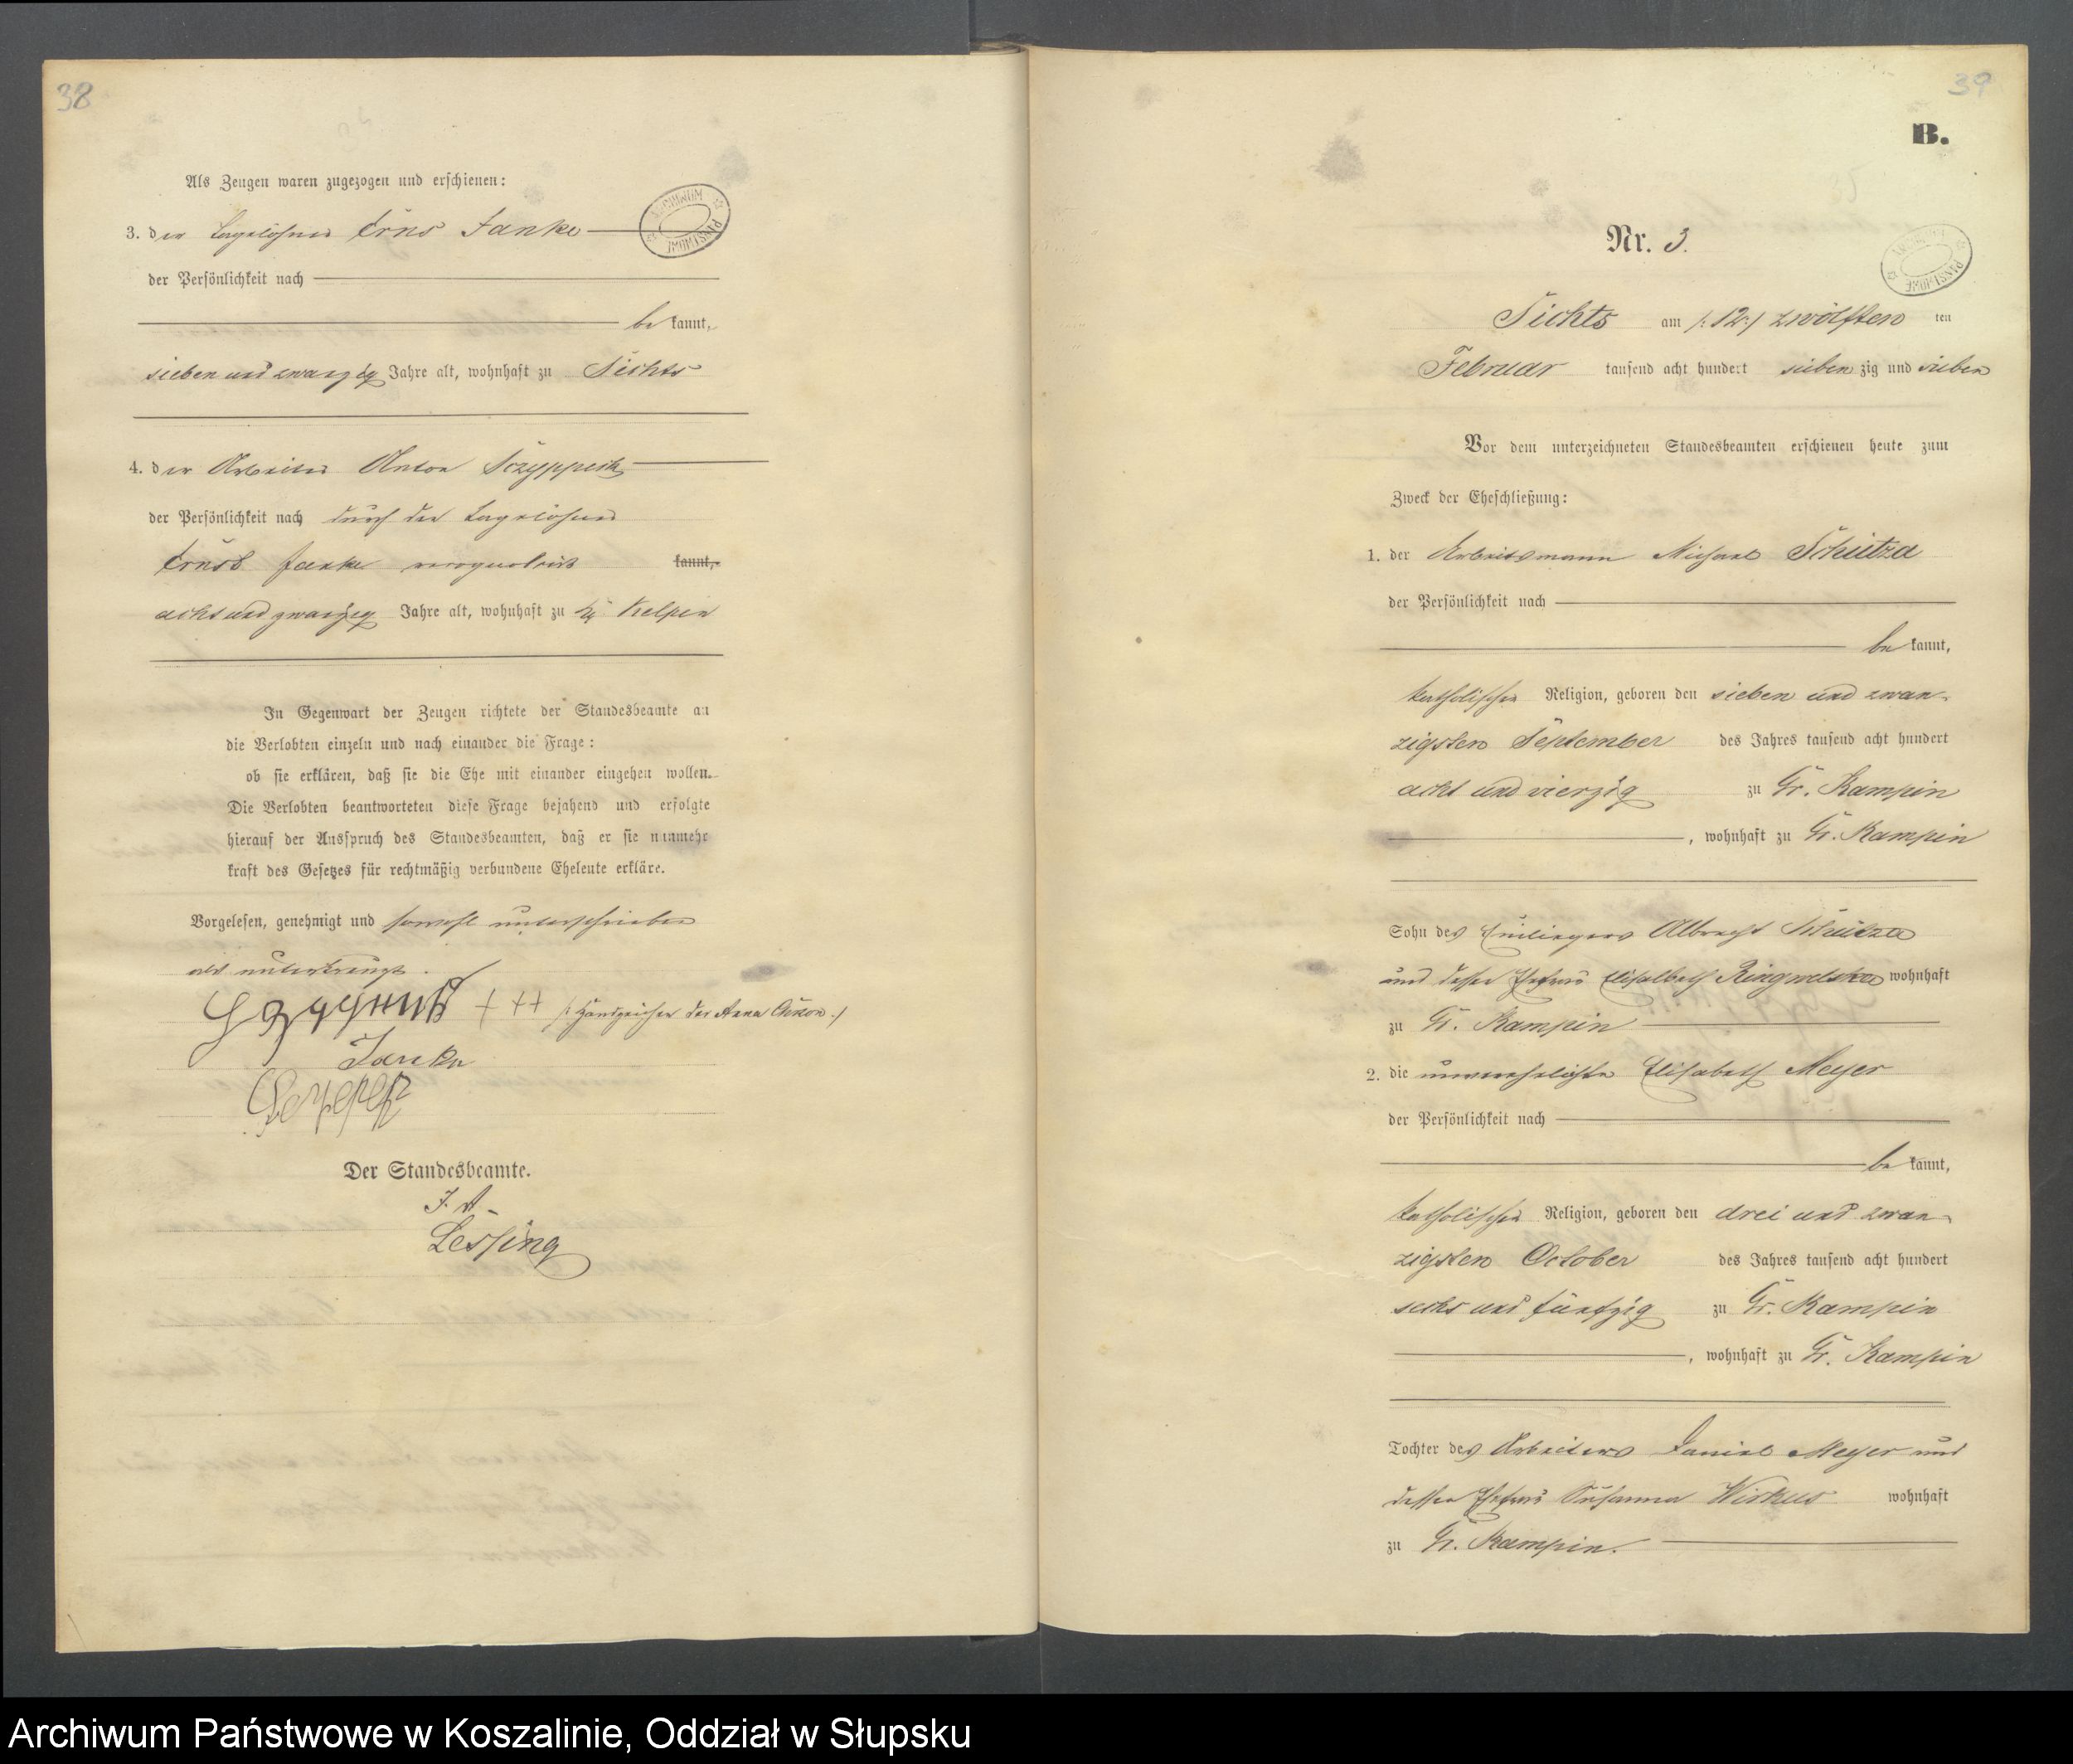 38
Als Zeugen waren zugezogen und erschienen:
3. der Tagelöhner Ernst Janke
der Persönlichkeit nach
be kannt,
sieben und zwanzig Jahre alt, wohnhaft zu Sichts
4. der Arbeiter Anton
der Persönlichkeit nach durch den Tagelöhner
Ernst Janke kannt,
acht und zwanzig Jahre alt, wohnhaft zu Kl. Kelpin
In Gegenwart der Zeugen richtete der Standesbeamte an
die Verlobten einzeln und nach einander die Frage:
ob sie erklären, daß sie die Ehe mit einander eingehen wollen.
Die Verlobten beantworteten diese Frage bejahend und erfolgte
hierauf der Ausspruch des Standesbeamten, daß er sie nunmehr
kraft des Gesetzes für rechtmäßig verbundene Eheleute erkläre.
Vorgelesen, genehmigt und sowohl unterschrieben
als unterkreuzt.
+++ /: Handzeichen der Anna :/
Janke
Der Standesbeamte.
J. V.
Lessing
39
B.
Nr. 3.
ARCHIWUM PAŃSTWOWE
Sichts am /:12:/ zwölften ten
Februar tausend acht hundert sieben zig und sieben
Vor dem unterzeichneten Standesbeamten erschienen heute zum
Zweck der Eheschließung:
1. der Arbeitsmann Michael Schutza
der Persönlichkeit nach
be kannt,
katholischer Religion, geboren den sieben und zwan-
zigsten September des Jahres tausend acht hundert
acht und vierzig zu Gr. Kampin
, wohnhaft zu Gr. Kampin
Sohn des Einliegers Albrecht Schutza
und dessen Ehefrau Elisabeth wohnhaft
zu Gr. Kampin
2. die unverehelichte Elisabeth Meyer
der Persönlichkeit nach
be kannt,
katholischer Religion, geboren den drei und zwan-
zigsten October des Jahres tausend acht hundert
sechs und fünfzig zu Gr. Kampin
, wohnhaft zu Gr. Kampin
Tochter des Arbeiters Daniel Meyer und
dessen Ehefrau Susanna Wirkus wohnhaft
zu Gr. Kampin.
Archiwum Państwowe w Koszalinie, Oddział w Słupsku